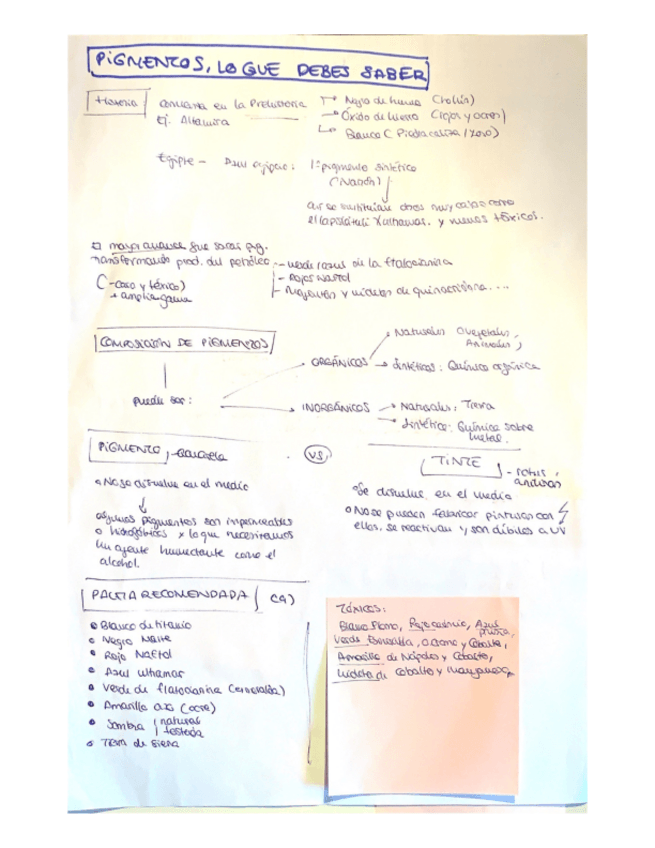 PIGMENTOS, LO QUE DEBES SABER
Historia
comienza en la Prehistoria
Ej. Altamira
Negro de humo (hollín)
Óxido de hierro (rojos y ocres)
Blanco Piedra caliza / Yeso)
Egipto - Azul egipcio: 1º pigmento sintético
así se sustituían otros muy caros como
el lapislázuli x alhamas. y menos tóxicos.
mayor avance que sacar pig.
Transformando prod. del petróleo
- caro y tóxico)
+ amplia gama
- verde/azul de la ftalocianina
- Rojos naftol
- Magentas y violetas de quinacridona....
COMPOSICIÓN DE PIGMENTOS
puede ser:
ORGÁNICOS
Naturales vegetales,
Animales,
Sintéticos: Química orgánica
INORGÁNICOS
Naturales: Tierra
Sintética: Química sobre
metal.
PIGMENTO,
VS
TINTE
No se disuelve en el medio
algunos pigmentos son impermeables
o hidrofóbicos x lo que necesitamos
un agente humectante como el
alcohol.
- rotus,
anilinas
Se disuelve en el medio
No se pueden fabricar pinturas con
ellos, se reactivan y son débiles a UV
PALETA RECOMENDADA
Blanco de titanio
Negro Marte
Rojo Naftol
Azul ultramar
Verde de ftalocianina (esmeralda)
Amarillo oxi (ocre)
Sombra natural
tostada
Tierra de siena
TÓXICOS:
Blanco Plomo, Rojo cadmio, Azul
prusia,
Verde Esmeralda, Cromo y Cobalto,
Amarillo de Nápoles y Cobalto,
Violeta de Cobalto y manganeso,